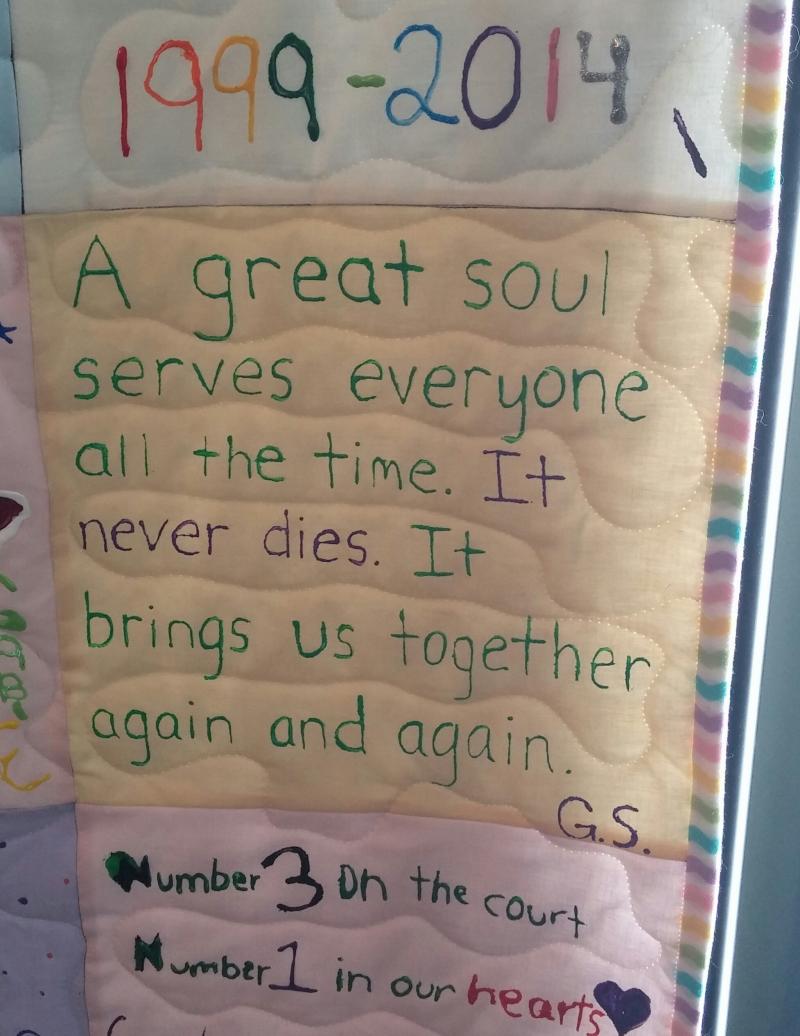 1999-2014
A great soul
serves everyone
all the time. It
never dies. It
brings us together
again and again.
G.S.
Number 3 On the court
Number 1 in our hearts